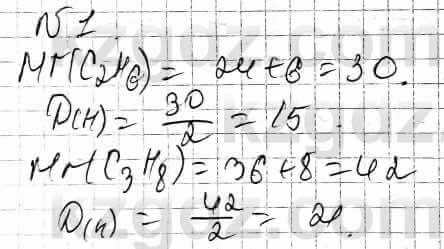 N 1.
Mr(C₂H₆) = 24+6 = 30.
D(H) = 30/2 = 15.
Mr(C₃H₈) = 36+8 = 42
D(н) = 42/2 = 21.